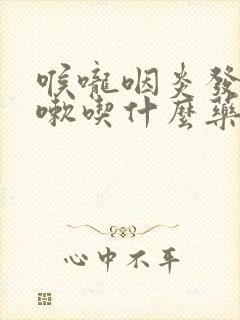 喉嚨咽炎發
嗽喫什麼藥
心中不平